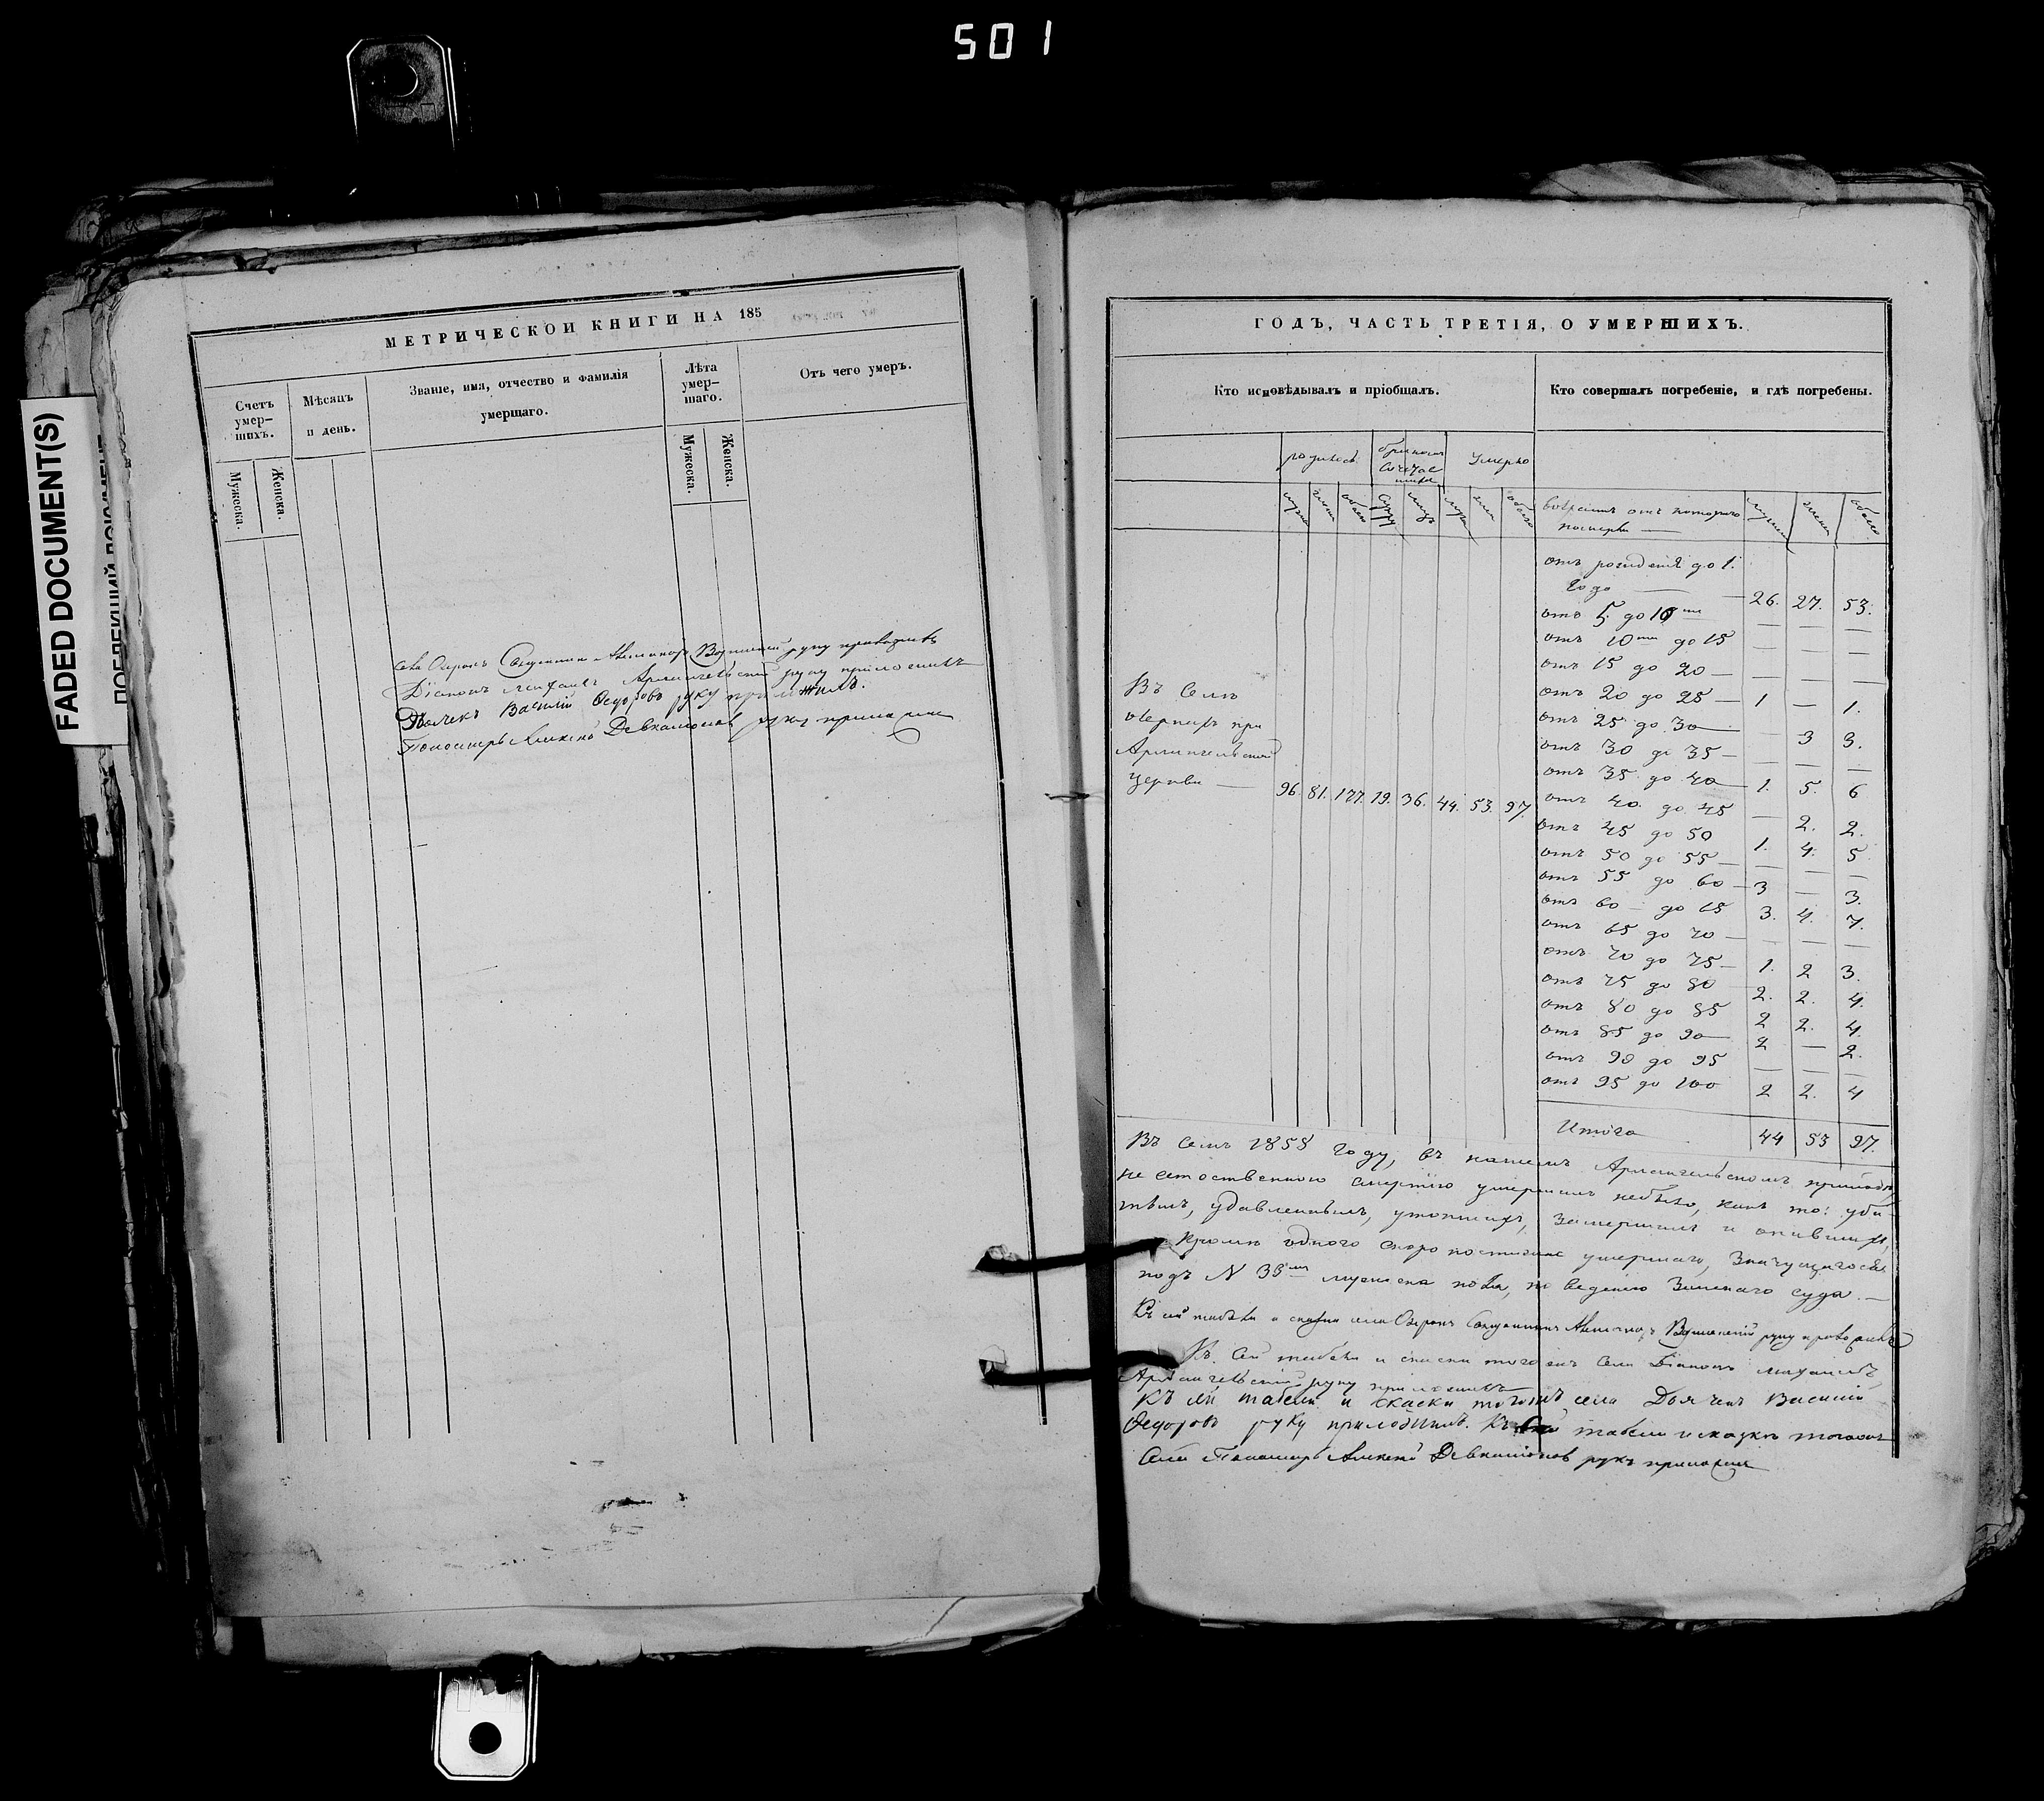 501
FADED DOCUMENT(S)
МЕТРИЧЕСКОИ КНИГИ НА 185
Счетъ умершихъ.
Мѣсяцъ и день.
Званіе, имя, отчество и фамилія умершаго.
Лѣта умершаго.
Отъ чего умеръ.
Мужеска.
Женска.
Мужеска.
Женска.
села Озрокъ Священникъ руку приложилъ
Діаконъ Михаилъ Архангельскій руку приложилъ
Дьячекъ Василій Ѳедоровъ руку приложилъ.
Пономарь Алексѣй Девкаліоновъ руку приложилъ
ГОДЪ, ЧАСТЬ ТРЕТІЯ, О УМЕРШИХЪ.
Кто исповѣдывалъ и пріобщалъ.
Кто совершалъ погребеніе, и гдѣ погребены.
родилось
бракомъ
умерло
обоего
обоего
обоего
отъ рожденія до 1.
года — 26. 27. 53.
отъ 5 до 10 — — —
отъ 10 до 15 — — —
отъ 15 до 20 — — —
отъ 20 до 25 — 1 — 1.
отъ 25 до 30 — 3 3.
отъ 30 до 35 — — —
отъ 35 до 40 1. 5. 6
отъ 40 до 45 — 2. 2.
отъ 45 до 50 1. 4. 5
отъ 50 до 55 — — —
отъ 55 до 60 3 — 3.
отъ 60 до 65 3. 4. 7.
отъ 65 до 70 — — —
отъ 70 до 75 1. 2 3.
отъ 75 до 80 2. 2. 4.
отъ 80 до 85 2 2. 4.
отъ 85 до 90 2 — 2.
отъ 90 до 95 — — —
отъ 95 до 100 2 2. 4
Итого 44 53 97.
Въ селѣ
при
Архангельской
церкви — 96. 81. 177. 19. 36. 44. 53. 97.
Въ семъ 1858 году, въ нашемъ Архангельскомъ приходѣ
не естественною смертію умершихъ небыло, какъ то: уби-
тыхъ, удавленныхъ, утопшихъ, замерзшихъ и опившихся,
кромѣ одного скоропостижно умершаго, значущагося
подъ N 35 мужеска пола, по веденію Земскаго суда. —
Къ сей табели и скаски села Озрокъ Священникъ руку приложилъ
Къ сей табели и скаски тогожъ села Діаконъ Михаилъ
Архангельскій руку приложилъ
Къ сей табели и скаски тогожъ села Дьячекъ Василій
Ѳедоровъ руку приложилъ. Къ сей табели и скаски тогожъ
села Пономарь Алексѣй Девкаліоновъ руку приложилъ